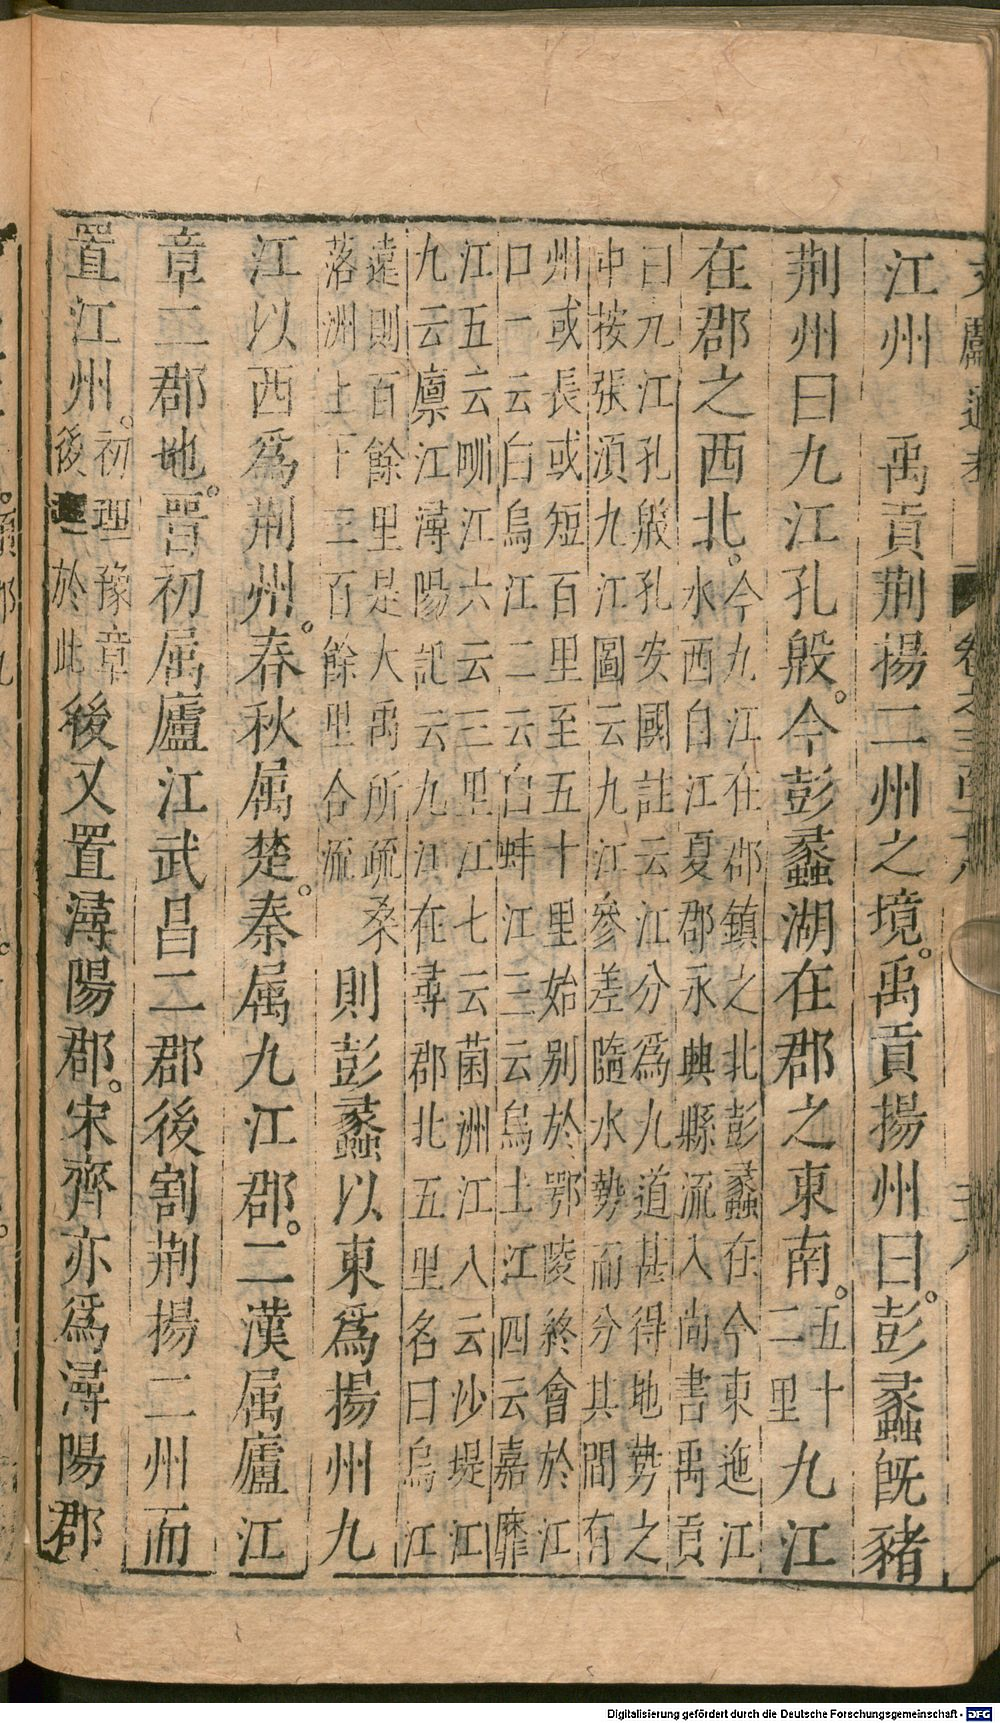 文獻通考 卷之三百十八 三八
江州 禹貢荆揚二州之境。禹貢揚州曰。彭蠡旣豬
荆州曰九江孔殷。今彭蠡湖在郡之東南。五十
二里
九江
在郡之西北。
今九江在郡鎮之北彭蠡在今東迤江
水西自江夏郡永興縣流入尚書禹貢
曰九江孔殷孔安國註云江分爲九道甚得地勢之
中按張湏九江圖云九江參差隨水勢而分其間有
州或長或短百里至五十里始别於鄂陵終會於江
口一云白烏江二云白蚌江三云烏土江四云嘉靡
江五云㽛江六云三里江七云菌洲江八云沙堤江
九云廪江潯陽記云九江在尋郡北五里名曰烏江
遠則百餘里是大禹所疏桑
落洲上下三百餘里合流
則彭蠡以東爲揚州九
江以西爲荆州。春秋属楚。秦属九江郡。二漢属廬江
章二郡地。晋初属廬江武昌二郡後割荆揚二州而
置江州。
初理豫章
後理於此
後又置潯陽郡。宋齊亦爲潯陽郡
Digitalisierung gefördert durch die Deutsche Forschungsgemeinschaft - DFG